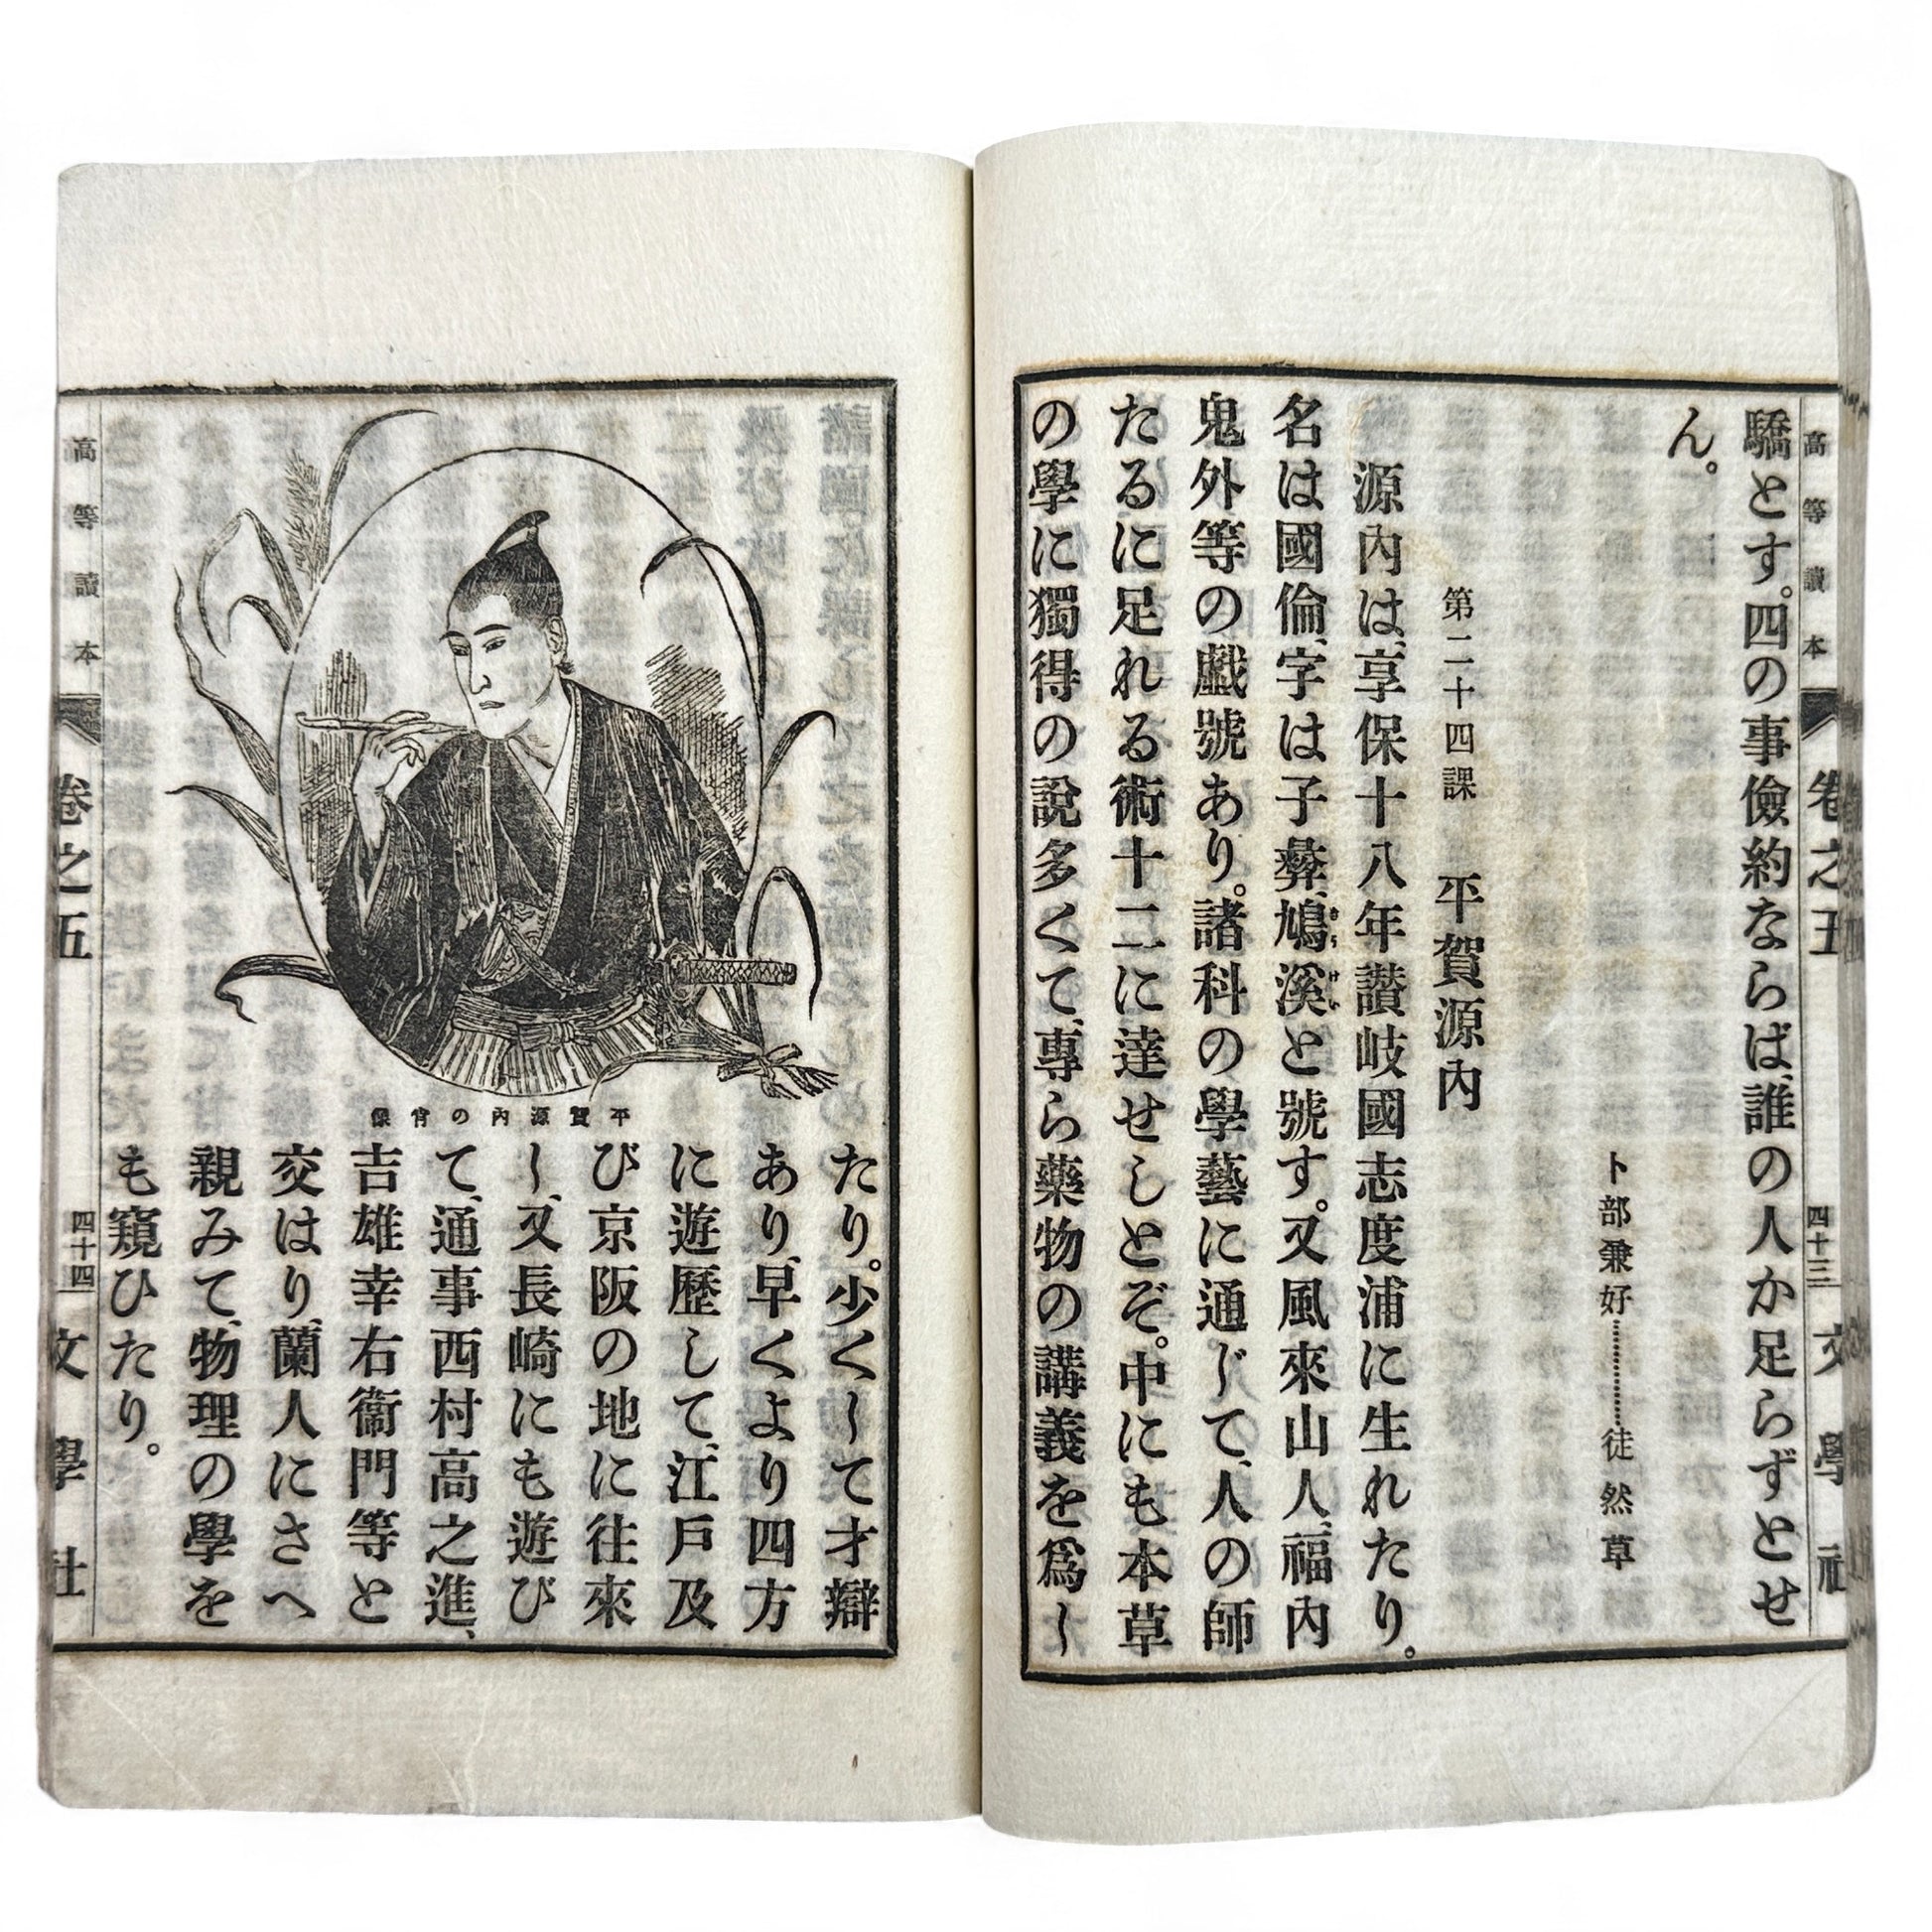 高等讀本
卷之五
四十三
文學社
驕とす。四の事儉約ならば、誰の人か足らずとせ
ん。
卜部兼好…………徒然草
第二十四課 平賀源內
源內は、享保十八年讃岐國志度浦に生れたり。
名は國倫、字は子彝、鳩溪と號す。又風來山人、福內
鬼外等の戲號あり。諸科の學藝に通じて、人の師
たるに足れる術十二に達せしとぞ。中にも本草
の學に獨得の說多くて、專ら藥物の講義を爲し
たり。少くして才辯
あり、早くより四方
に遊歷して、江戶及
び京阪の地に往來
し、又長崎にも遊び
て、通事西村高之進、
吉雄幸右衞門等と
交はり、蘭人にさへ
親みて、物理の學を
も窺ひたり。
平賀源內の肖像
高等讀本
卷之五
四十四
文學社